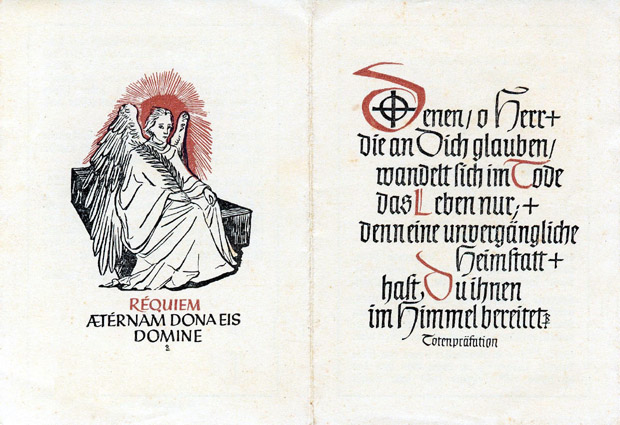 RÉQUIEM
ÆTÉRNAM DONA EIS
DOMINE
Denen/ o Herr+
die an Dich glauben/
wandelt sich im Tode
das Leben nur, +
denn eine unvergängliche
Heimstatt+
hast, Du ihnen
im Himmel bereitet
Totenpräfation